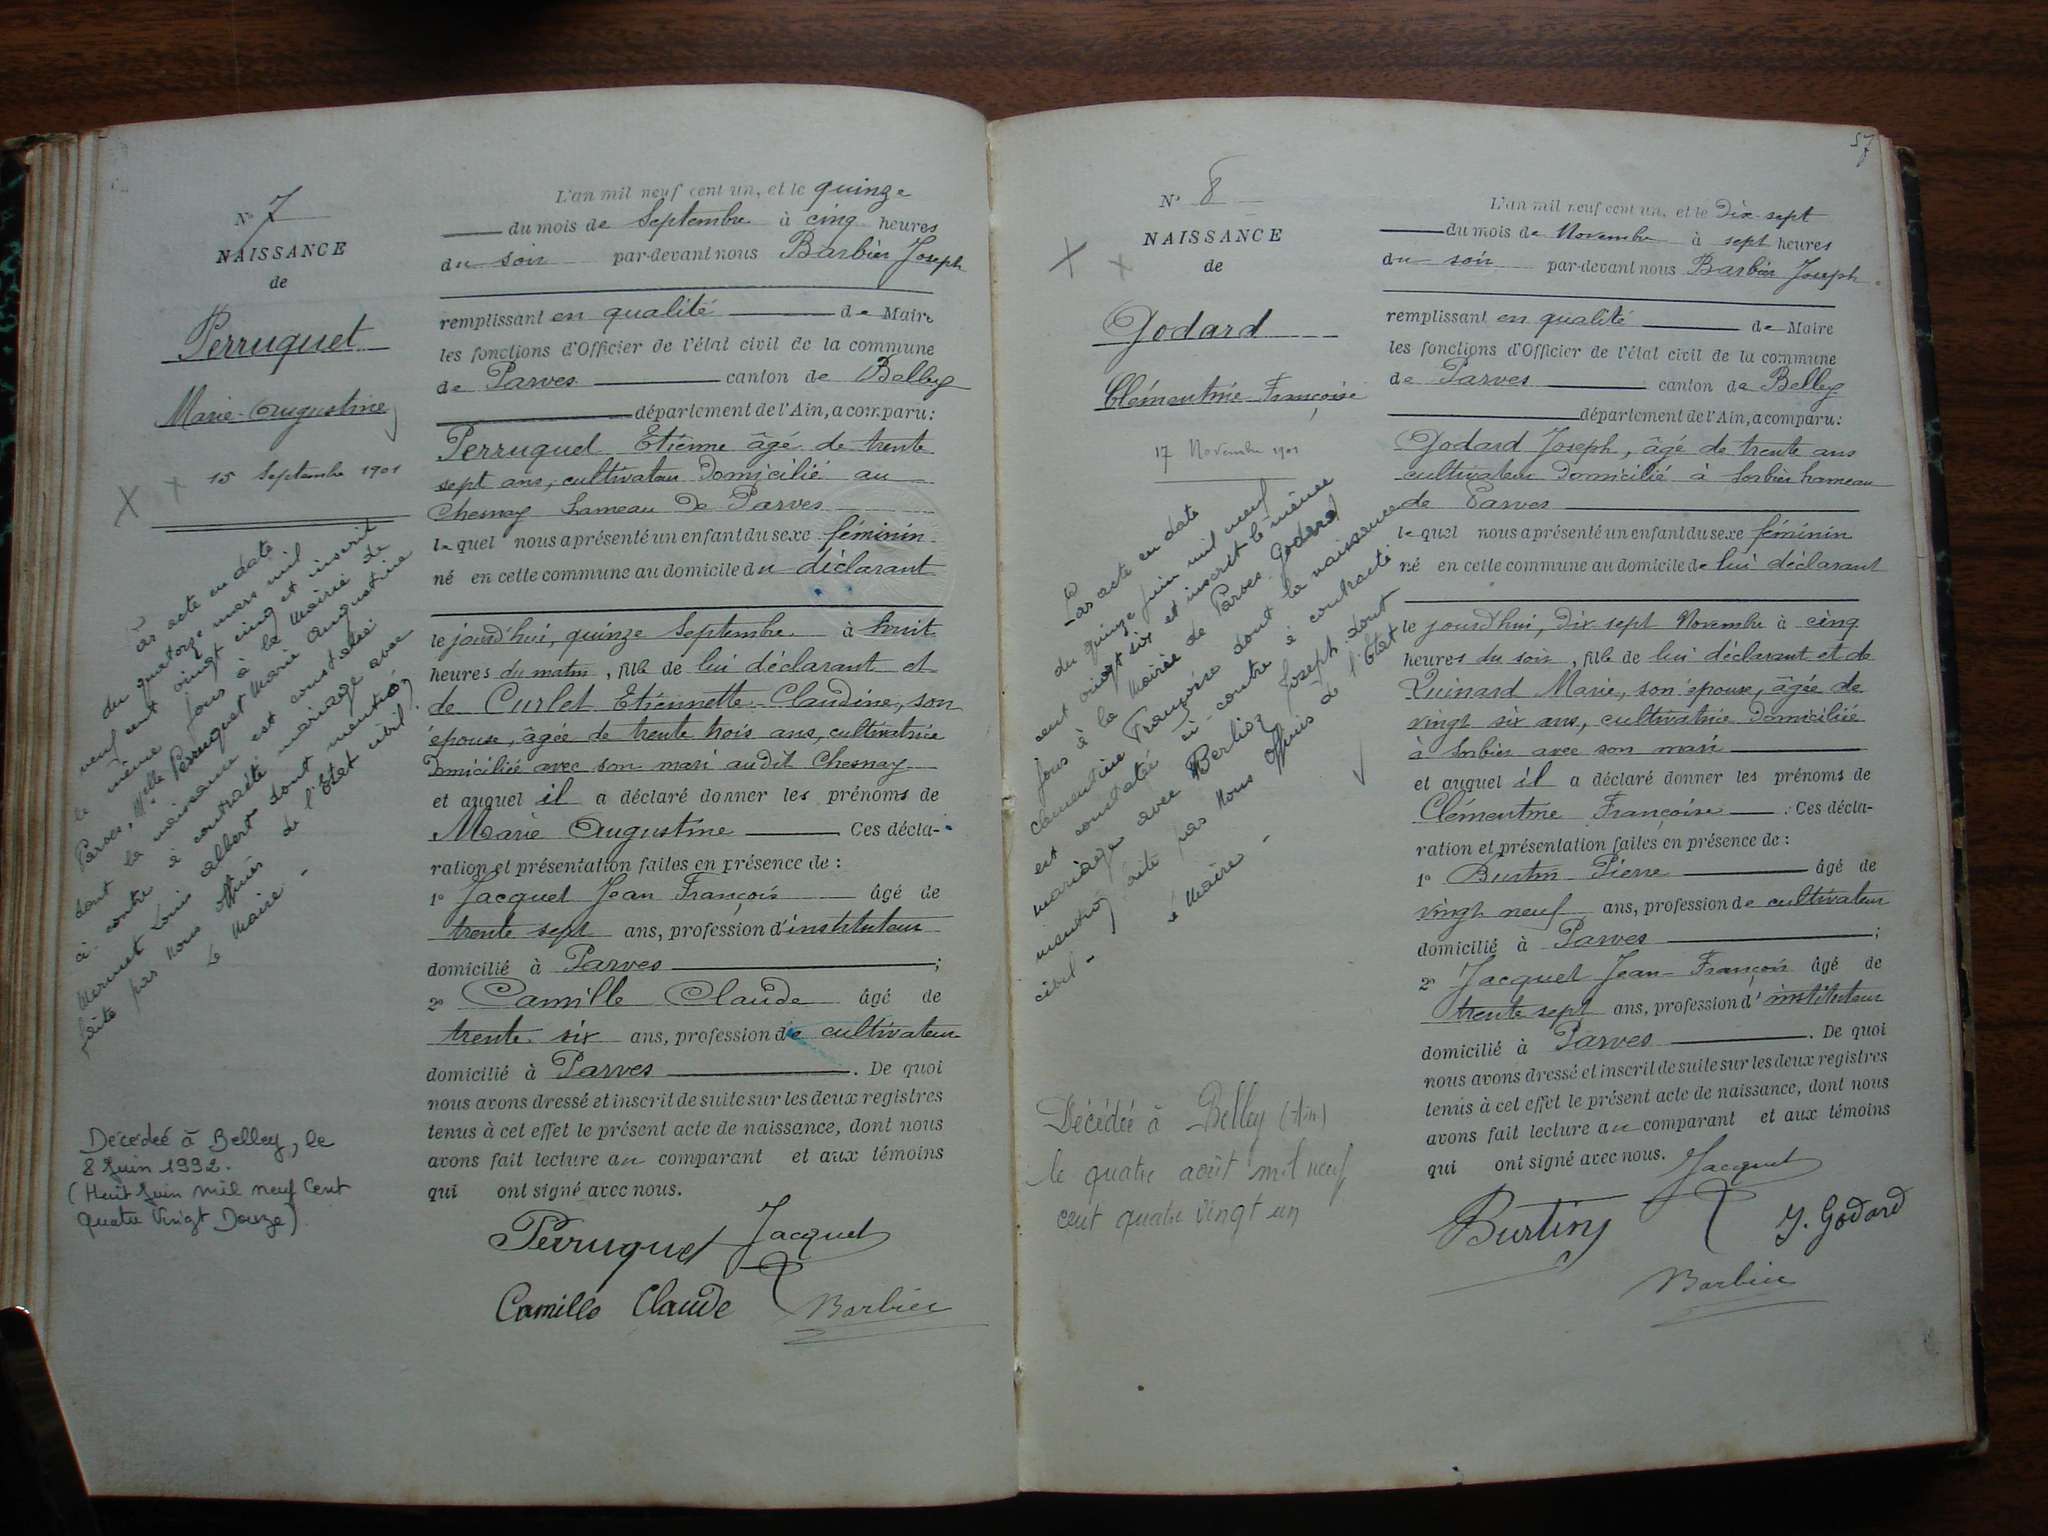 N° 7
NAISSANCE
de
Perruquet
Marie-Augustine
15 Septembre 1901
Par acte en date
du quatorze mars mil
neuf cent vingt cinq et inscrit
le même jour à la Mairie de
Parves, Melle Perruquet Marie Augustine
dont la naissance est constatée
ci-contre à contracté mariage avec
Louis Albert dont mention
faite par Nous Officier de l'Etat civil,
Le Maire -
Décédée à Belley, le
8 Juin 1992.
(Huit Juin mil neuf Cent
quatre Vingt Douze)
L'an mil neuf cent un, et le quinze
du mois de Septembre à cinq heures
du soir par-devant nous Barbier Joseph
remplissant en qualité de Maire
les fonctions d'Officier de l'état civil de la commune
de Parves canton de Belley
département de l'Ain, a comparu:
Perruquet Etienne âgé de trente
sept ans, cultivateur Domicilié au
Chesnay hameau de Parves
lequel nous a présenté un enfant du sexe féminin
né en cette commune au domicile du déclarant
le jourd'hui, quinze Septembre à huit
heures du matin, fille de lui déclarant et
de Curlet Etiennette-Claudine, son
épouse, âgée de trente trois ans, cultivatrice
Domiciliée avec son mari audit Chesnay
et auquel il a déclaré donner les prénoms de
Marie Augustine Ces décla-
ration et présentation faites en présence de :
1° Jacquet Jean François âgé de
trente sept ans, profession d'instituteur
domicilié à Parves ;
2° Camille Claude âgé de
trente six ans, profession de cultivateur
domicilié à Parves . De quoi
nous avons dressé et inscrit de suite sur les deux registres
tenus à cet effet le présent acte de naissance, dont nous
avons fait lecture au comparant et aux témoins
qui ont signé avec nous.
Perruquet Jacquet
Camille Claude Barbier
57
N° 8
NAISSANCE
de
Godard
Clémentine Françoise
17 Novembre 1901
Par acte en date
du quinze juin mil neuf
cent vingt six et inscrit le même
jour à la Mairie de Parves Godard
Clementine Françoise dont la naissance
est constatée ci-contre à contracté
mariage avec Berlioz Joseph dont
mention faite par Nous Officier de l'Etat
civil -
Le Maire -
Décédée à Belley (Ain)
le quatre août mil neuf
cent quatre vingt un
L'an mil neuf cent un, et le Dix-sept
du mois de Novembre à sept heures
du soir par-devant nous Barbier Joseph
remplissant en qualité de Maire
les fonctions d'Officier de l'état civil de la commune
de Parves canton de Belley
département de l'Ain, a comparu:
Godard Joseph, âgé de trente ans
cultivateur Domicilié à Sorbier hameau
de Parves
lequel nous a présenté un enfant du sexe féminin
né en cette commune au domicile de lui déclarant
le jourd'hui, Dix sept Novembre à cinq
heures du soir, fille de lui déclarant et de
Quinard Marie, son épouse, âgée de
vingt six ans, cultivatrice Domiciliée
à Sorbier avec son mari
et auquel il a déclaré donner les prénoms de
Clémentine Françoise . Ces décla-
ration et présentation faites en présence de :
1° Burtin Pierre âgé de
vingt neuf ans, profession de cultivateur
domicilié à Parves ;
2° Jacquet Jean-François âgé de
trente sept ans, profession d'instituteur
domicilié à Parves . De quoi
nous avons dressé et inscrit de suite sur les deux registres
tenus à cet effet le présent acte de naissance, dont nous
avons fait lecture au comparant et aux témoins
qui ont signé avec nous. Jacquet
Burtin J. Godard
Barbier